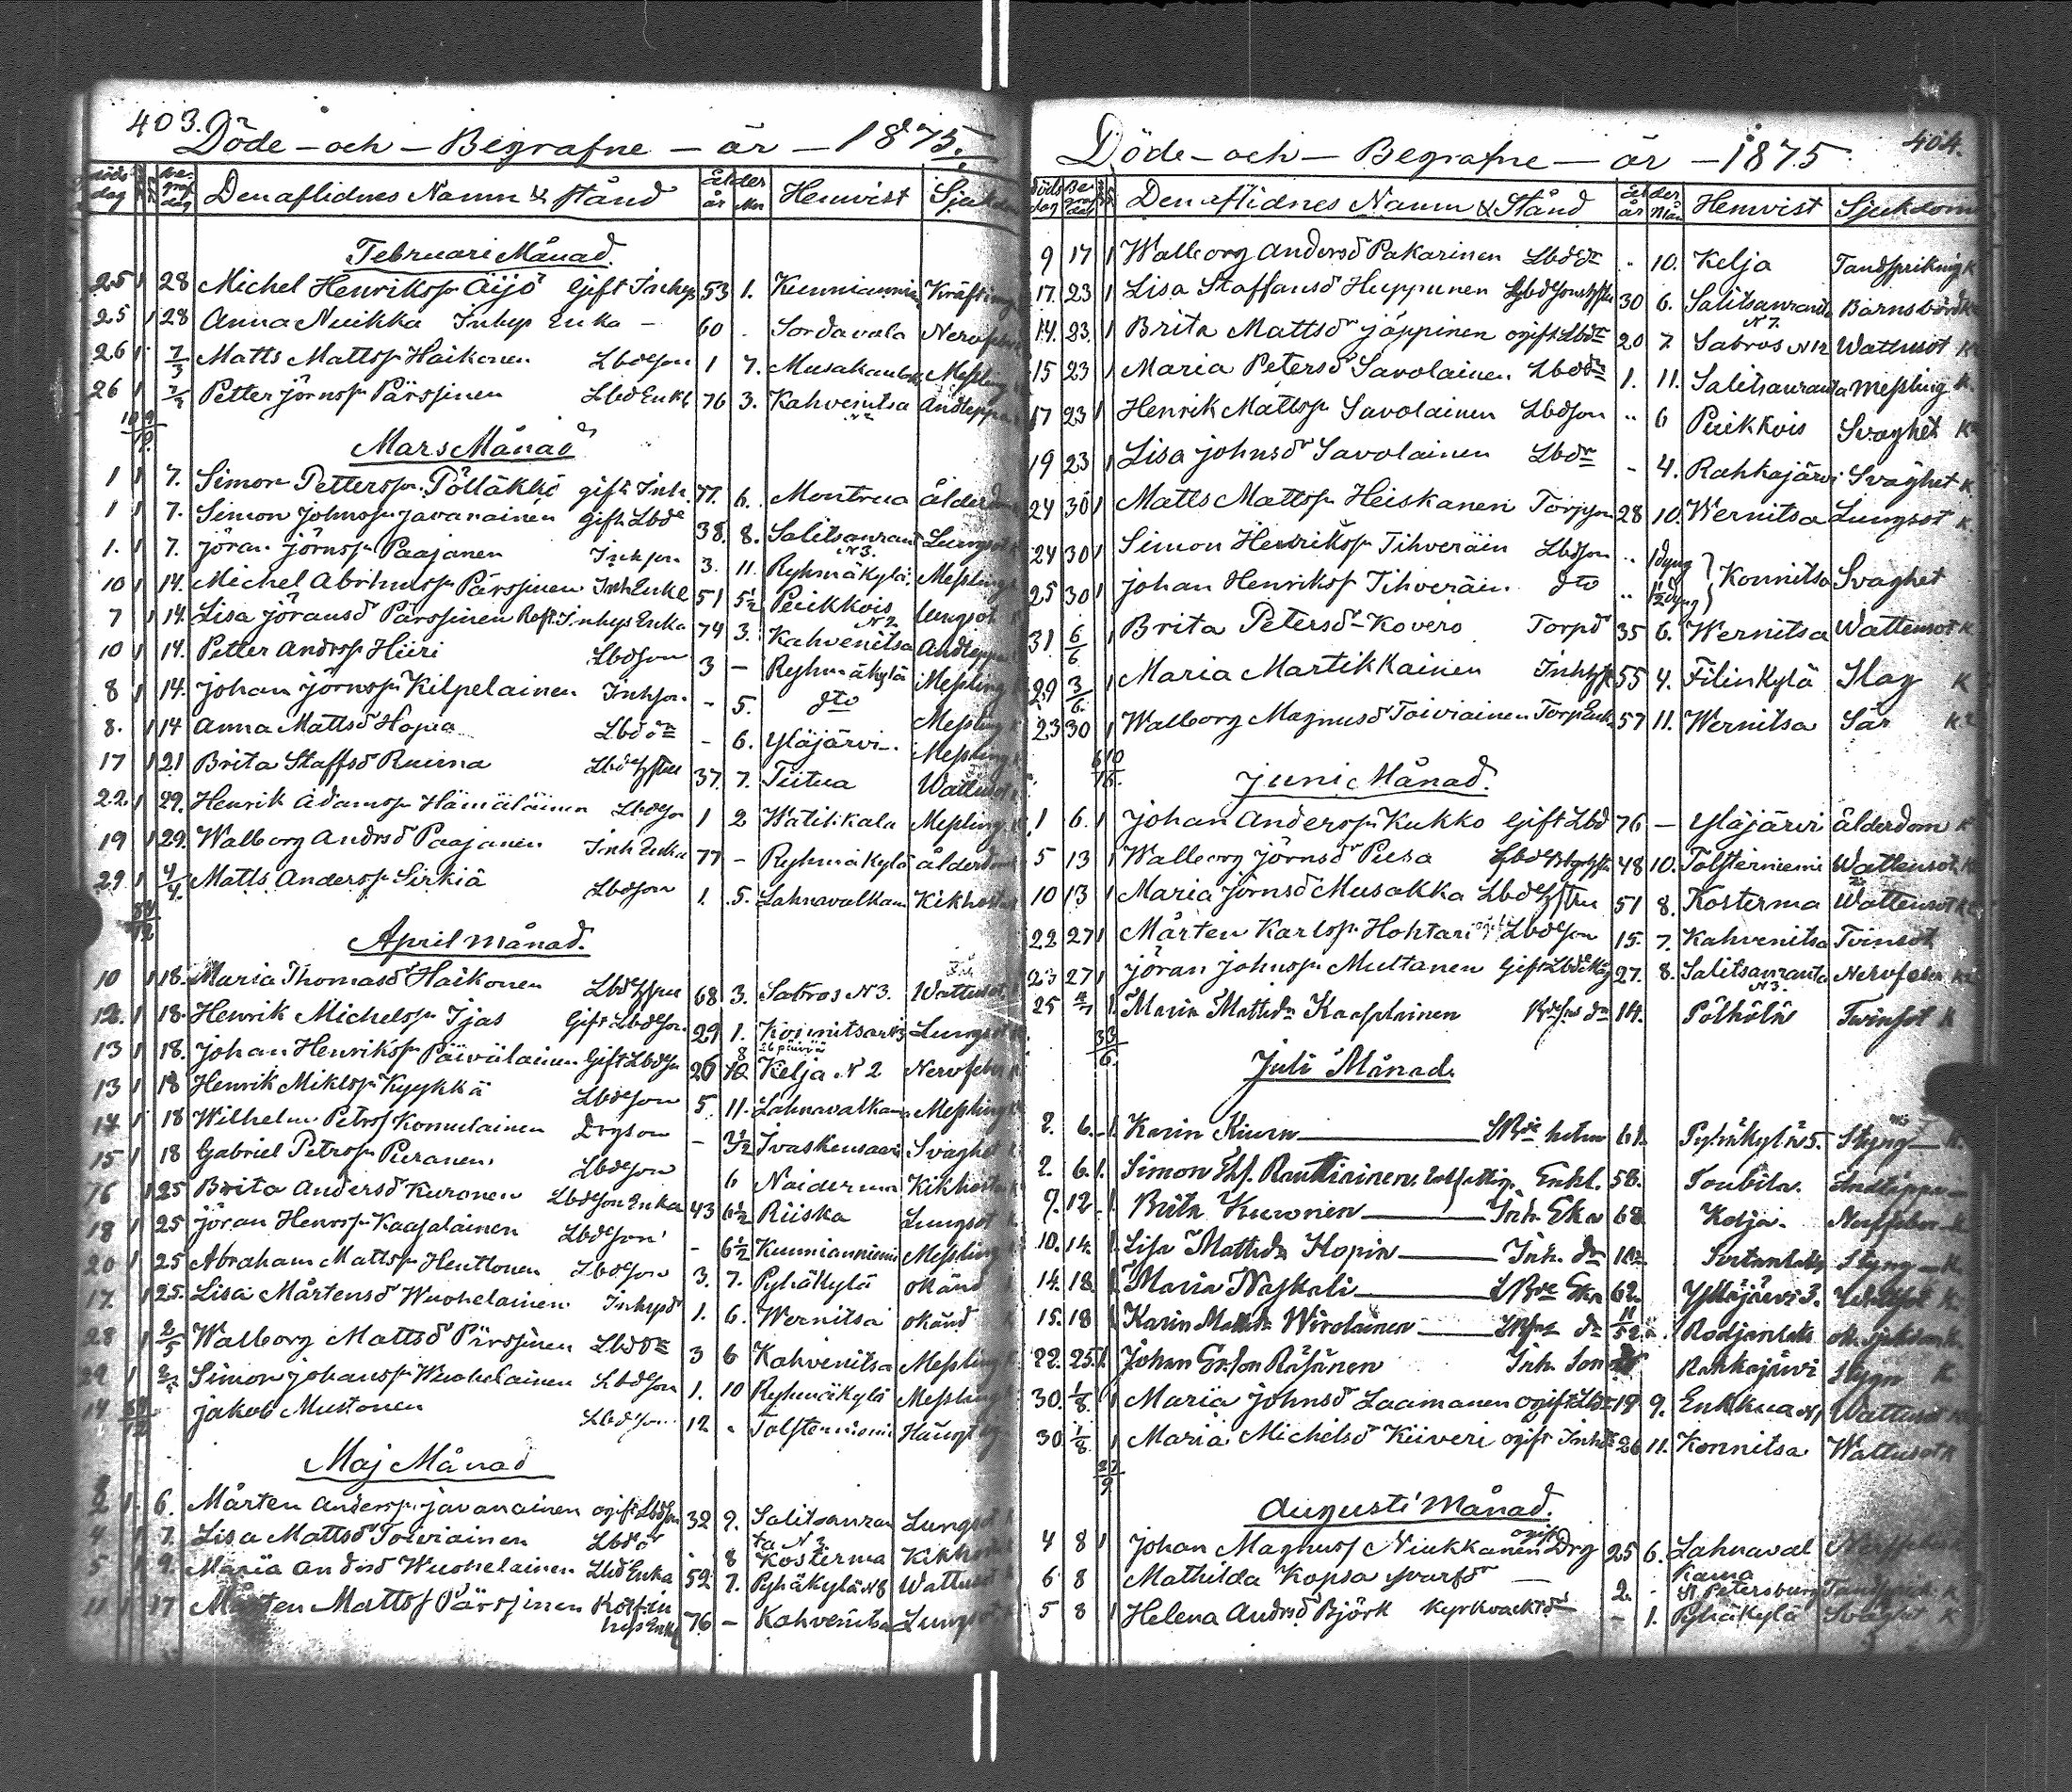 403.
Döde - och - Begrafne - år - 1875.
Döds dag Begraf dag Den aflidnes Namn & Stånd ålder år Mn Hemvist Sjukdom
Februari Månad.
25 1 28 Michel Henriksp. Äijö Gift Inhys 53 1. Kunnianniemi Kräftsing
25 1 28 Anna Nuikka Inhys Enka - 60 . Sordavala Nervfeber
26 1 7/3 Matts Mattsp. Haikonen Lbdeson 1 7. Musakanlaks Messling
26 1 7/3 Petter Jörnsp. Pärssinen Lbd Enkl 76 3. Kahvenitsa Andteppa
Mars Månad
1 1 7. Simon Pettersp. Pölläkkö gift Inh. 77. 6. Montrua Ålderdom
1 1 7. Simon Johnsp. Javanainen gift Lbde 38. 8. Salitsanranta N3. Lungsot
1. 1 7. Jöran Jörnsp. Paajanen Inhson 3. 11. Ryhmäkylä Messling
10 1 14. Michel Abrhmsp. Pärssinen Inh Enkl 51 5½ Puikkois Lungsot
7 1 14. Lisa Jöransd Pärssinen Rotf. Inhys Enka 74 3. Kahvenitsa N2 Andteppa
10 1 14. Petter Andrsp. Hiiri Lbdson 3 - Ryhmäkylä Messling
8 1 14. Johan Jörnsp. Kilpelainen Inhson - 5. dto Messling
8. 1 14 Anna Mattsd Hopia Lbddr - 6. Yläjärvi Messling
17 1 21 Brita Staffsd Ruuna Lbdehstru 37. 7. Tiitua Wattusot
22 1 29. Henrik Adamsp. Hämäläinen Lbdeson 1 2 Watikkala Messling
19 1 29. Walborg Andrsd Paajanen Inh Enka 77 - Ryhmäkylä Ålderdom
29 1 4/4. Matts Andersp. Sirkiä Lbdson 1. 5. Lahnavalkam Kikhosta
April månad.
10 1 18. Maria Thomasd Haikonen Lbdehstru 68 3. Satros N3. Wattusot
12. 1 18. Henrik Michelsp. Ijas Gift Lbdeson 29 1. Konnitsa N3 Lungsot
13 1 18. Johan Henriksp. Päiväläinen Gift Lbdeson 26 10 8 26 päivää Kelja N 2 Nervfeber
13 1 18 Henrik Miklsp. Kyykkä Lbdeson 5. 11. Lahnavalkam Messling
14 1 18 Wilhelm Petrsp Komulainen Drgson - 2½ Ivaskensaari Svaghet
15 1 18 Gabriel Petrsp. Puranen Lbdeson 6 Noiderma Kikhosta
16 1 25 Brita Andersd Kuronen Lbdeson Enka 43 6½ Riiska Lungsot
18 1 25 Jöran Henrsp. Kaasalainen Lbdeson - 6½ Kunnianniemi Messling
20 1 25 Abraham Mattsp. Henttonen Lbdeson 3. 7. Pyhäkylä okänd
17. 1 25. Lisa Mårtensd Wuohelainen Inhysd 1. 6. Wernitsa okänd
28 1 2/5 Walborg Mattsd Pärssinen Lbddr 3 6 Kahvenitsa Messling
29 1 2/5 Simon Johansp. Wuohelainen Lbdson 1. 10 Ryhmäkylä Messling
14 Jakob Mustonen Lbdson 12 . Tolsterniemi
Maj Månad
2 1 6. Mårten Andersp. Javanainen ogift Lbdson 32 9. Salitsanranta N3 Lungsot
4 1 7. Lisa Mattsd Toiviainen Lbddr 8 Kosterma Kikhosta
5 1 9. Maria Andrsd Wuohelainen Lbd Enka 52 7. Pyhäkylä N8 Wattusot
11 1 17 Mårten Mattsp Pärssinen Rotf. Inhys Enkl 76 - Kahvenitsa Lungsot
404.
Döde - och - Begrafne - år - 1875
Döds dag Begraf dag Den aflidnes Namn & Stånd ålder år Mån Hemvist Sjukdom
9 17 1 Walborg Andersd Pakarinen Lbddr . 10. Kelja Tandsprikning K
17. 23 1 Lisa Staffansd Huppunen Lbdsonshstru 30 6. Salitsanranta N7. Barnsbörd K
14. 23. 1 Brita Mattsdr Jäppinen ogift Lbddr 20 7 Satros N12 Wattusot K
15 23 1 Maria Petersd Savolainen Lbddr 1. 11. Salitsanranta Messling K.
17 23 1 Henrik Mattsp. Savolainen Lbdson .. 6 Puikkois Svaghet K
19 23 1 Lisa Johnsdr Savolainen Lbdr - 4. Rahkajärvi Svaghet K
24 30 1 Matts Mattsp. Heiskanen Torpson 28 10. Wernitsa Lungsot K
24 30 1 Simon Henriksp. Tihveräin Lbdson .. 1 dygn Konnitsa Svaghet
25 30 1 Johan Henriksp Tihveräin dto .. 1½ dygn
31 6/6 1 Brita Petersd Kovero Torpd 35 6. Wernitsa Wattusot K
29 3/6 1 Maria Martikkainen Inhys 55 4. Filinkylä Slag K
23 30 1 Walborg Magnusd Toiviainen Torp Enka 57 11. Wernitsa Sår K
Juni Månad.
1 6. 1 Johan Andersp. Kukko Gift Lbd 76 - Yläjärvi ålderdom K
5 13 1 Walborg Jörnsdr Pusa 48 10. Tolsterniemi Wattusot K
10 13 1 Maria Jörnsd Musakka Lbdehstru 51 8. Kosterma Wattusot K
22 27 1 Mårten Karlsp. Hohtari Lbdeson 15. 7. Kahvenitsa Tvinsot
23 27 1 Jöran Johnsp. Multanen Gift Lbde Måg 27. 8. Salitsanranta N3. Nervfeber K
25 1 Maria Mattsdr Kaasalainen 14. Pölhölä Tvinsot K
33/6.
Juli Månad.
2. 6. 1. Karin Kiuru 61. Pyhäkylä N5. Styng K.
2. 6. 1. Simon Rautiainen Enkl. 58. Toubila. Andtäppa
9. 12 1. Brita Kuronen Inh. Eka 68 Kelja. Nerffeber K
10. 14. 1. Lisa Mattsdr Hopia Inh. dr Sortanlaks Styng K.
14. 18. 1. Maria Naskali Eka 62. Yläjärvi 3. K.
15. 18 1 Karin Mattsdr Wirolainen dr 11/52 Rodjanlaks ok. sjukdom K.
22. 25. 1. Johan Räsänen Inh. Son Rahkajärvi Stygn K
30. 1/8. 1 Maria Johnsd Laamanen ogift Lbd 19 9. Enkkua N1 Wattusot
30. 1/8 1 Maria Michelsd Kiiveri ogift Inhd 26 11. Konnitsa Wattusot K
27/9
Augusti Månad.
4 8 1 Johan Magnusp Niukkanen ogift Drg 25 6. Lahnavalkama Nerffeber
6 8 Mathilda Kopsa Svarfd - 2. - St Petersburg Tandsprick. K
5 8 1 Helena Andrsd Björk Kyrkvacktd - 1. Pyhäkylä Svaghet K